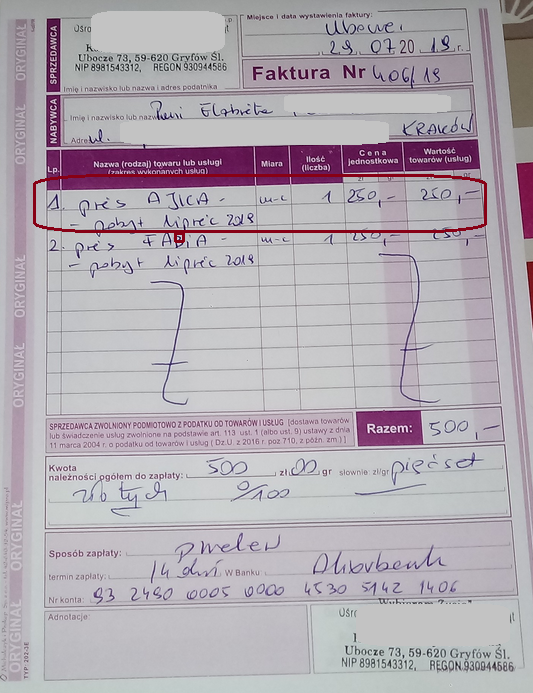 Miejsce i data wystawienia faktury:
Ubocze
29.07 2019 r.
SPRZEDAWCA
Ubocze 73, 59-620 Gryfów Śl.
NIP 8981543312, REGON 930944586
Imię i nazwisko lub nazwa i adres podatnika
Faktura Nr 406/19
NABYWCA
Imię i nazwisko lub nazwa Pani Elżbieta
Adres ul. KRAKÓW
Lp. Nazwa (rodzaj) towaru lub usługi (zakres wykonanych usług) Miara Ilość (liczba) Cena jednostkowa Wartość towarów (usług)
1. pies AJICA - m-c 1 250,- 250,-
- pobyt lipiec 2019
2. pies - m-c 1 250,- 250,-
- pobyt lipiec 2019
SPRZEDAWCA ZWOLNIONY PODMIOTOWO Z PODATKU OD TOWARÓW I USŁUG [dostawa towarów
lub świadczenie usług zwolnione na podstawie art. 113 ust. 1 (albo ust. 9) ustawy z dnia
11 marca 2004 r. o podatku od towarów i usług ( Dz.U. z 2016 r. poz 710, z późn. zm.) ]
Razem: 500,-
Kwota
należności ogółem do zapłaty: 500 zł 00 gr słownie: zł/gr pięćset
złotych 0/100
Sposób zapłaty: przelew
termin zapłaty: 14 dni W Banku:
Nr konta: 93 2490 0005 0000 4530 5142 1406
Adnotacje:
Ubocze 73, 59-620 Gryfów Śl.
NIP 8981543312, REGON 930944586
ORYGINAŁ
ORYGINAŁ
ORYGINAŁ
ORYGINAŁ
ORYGINAŁ
ORYGINAŁ
ORYGINAŁ